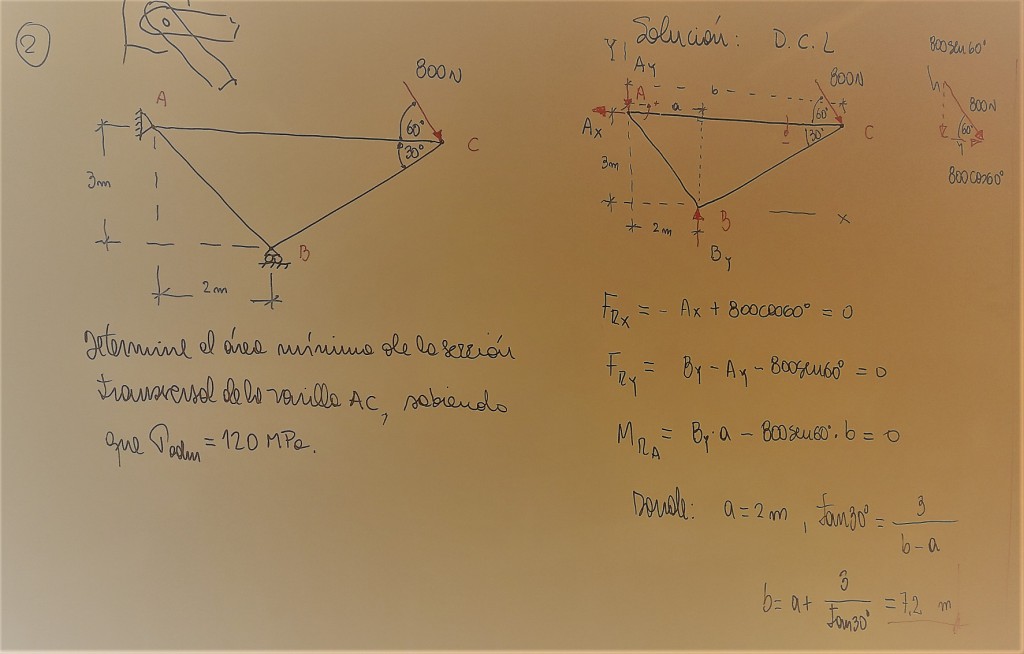 2
800N
A
60°
30°
C
3m
B
2m
Determine el área mínima de la sección
transversal de la varilla AC, sabiendo
que σadm = 120 MPa.
Solución: D.C.L
Y
Ay
A
b
a
800N
60°
30°
C
Ax
3m
2m
B
By
x
800sen60°
800N
60°
800cos60°
FRx = - Ax + 800cos60° = 0
FRy = By - Ay - 800sen60° = 0
MRA = By·a - 800sen60°·b = 0
Donde: a = 2m , tan30° = 3 / b-a
b = a + 3 / tan30° = 7,2 m